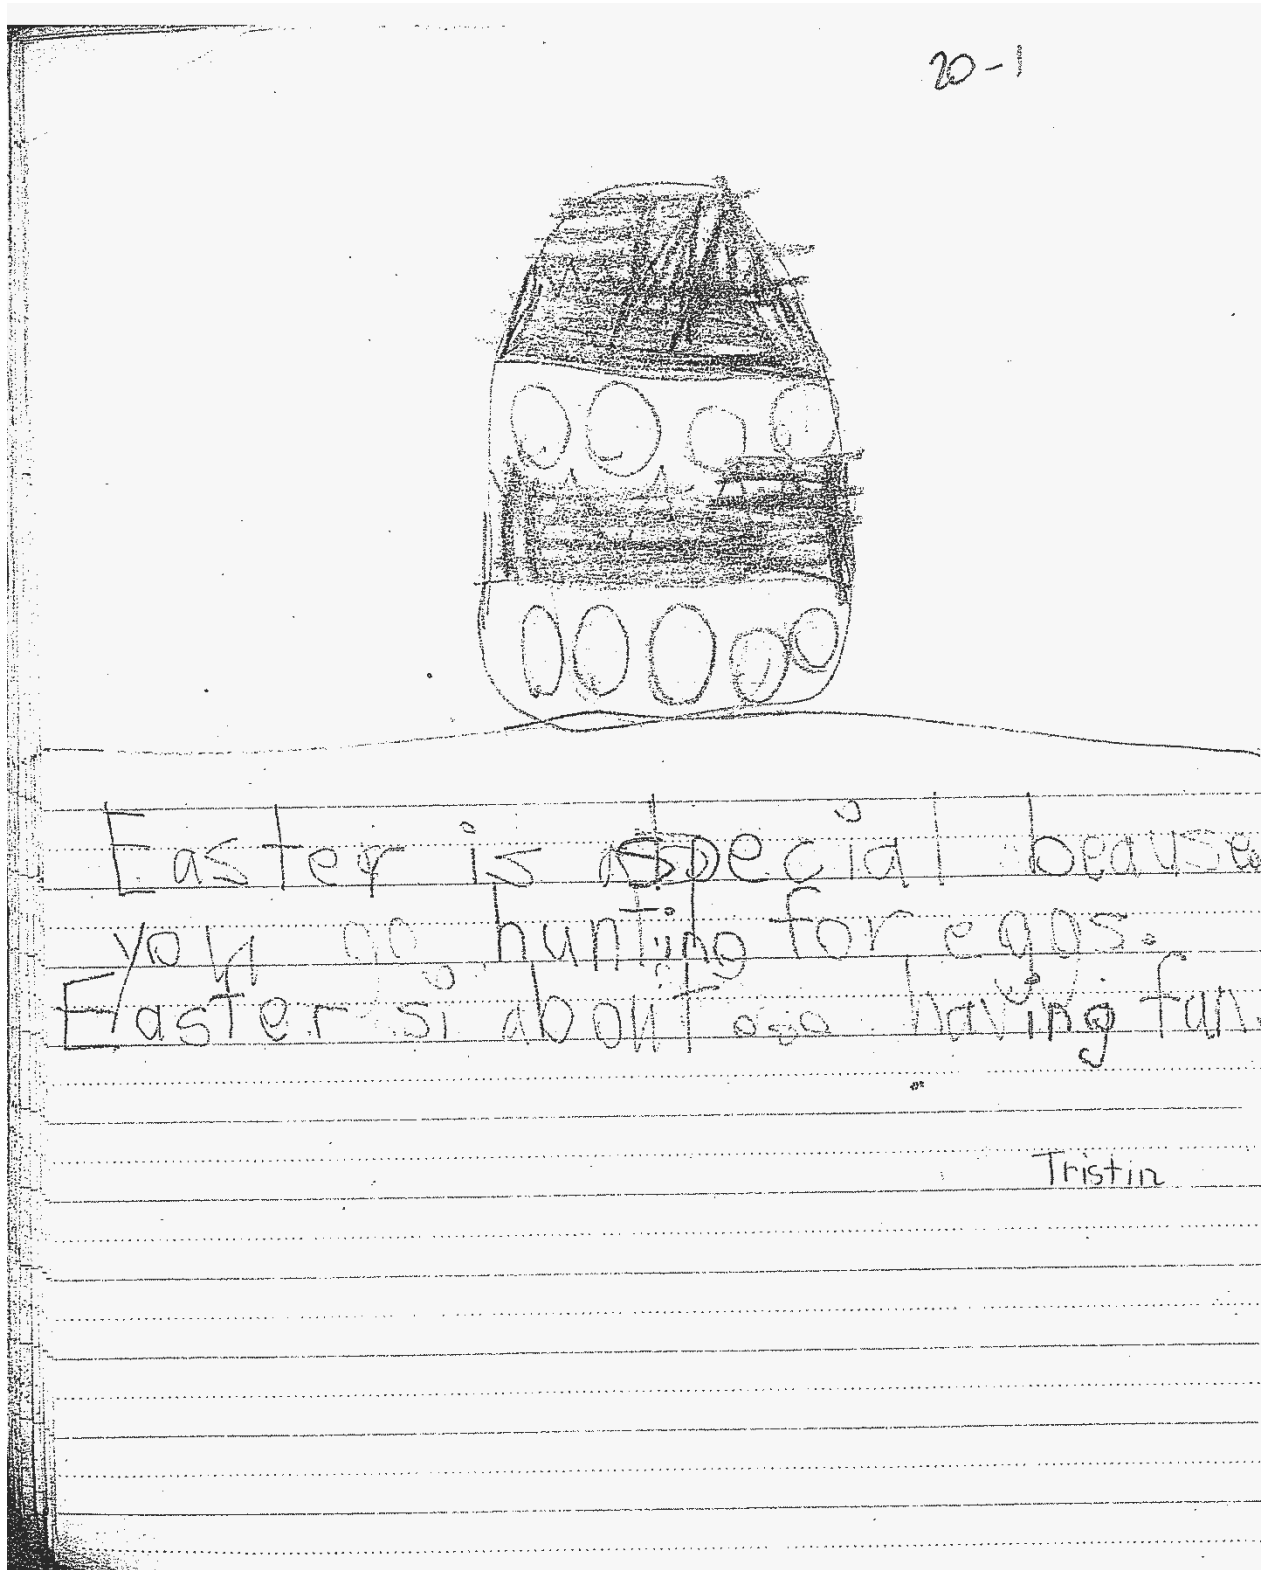 20-1
Easter is special beause
you go hunting for eggs.
Easter si about having fun.
Tristin